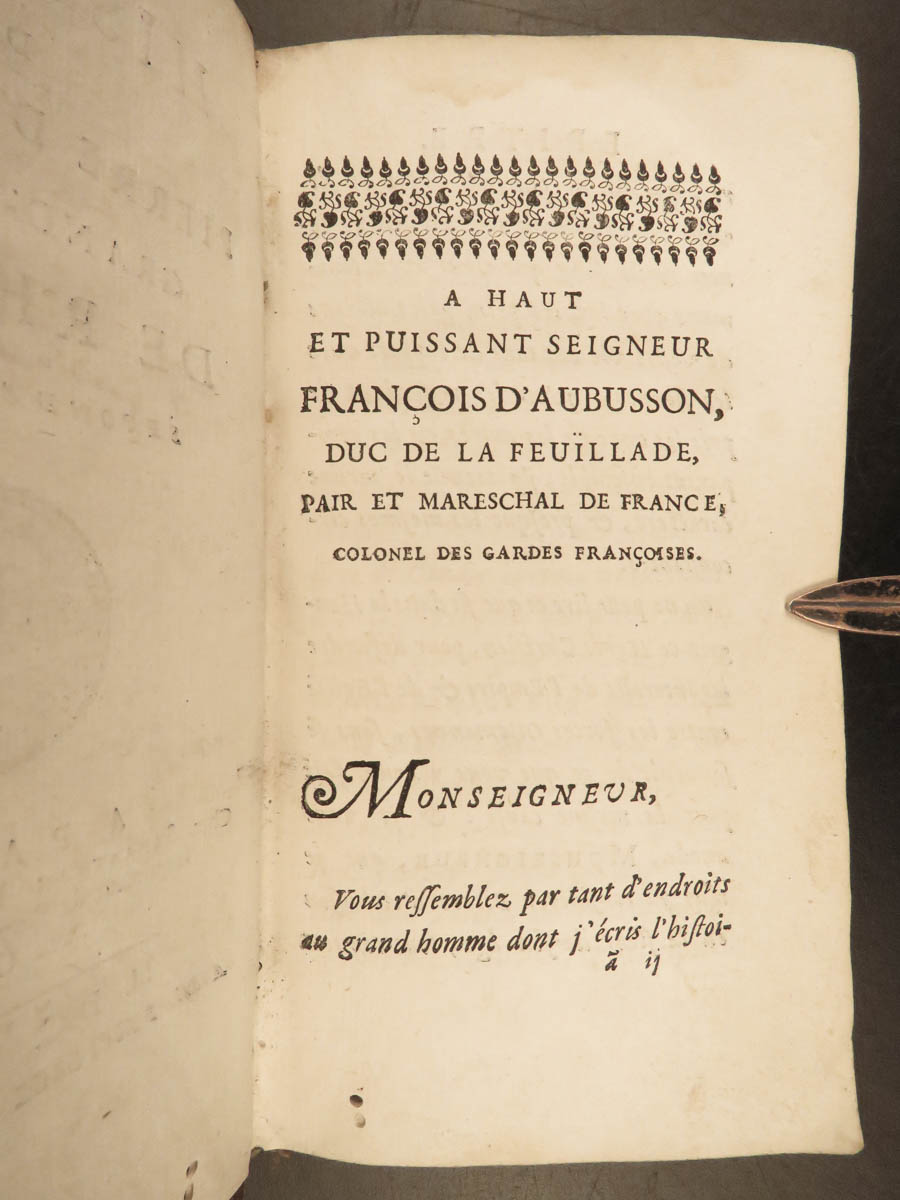 A HAUT
ET PUISSANT SEIGNEUR
FRANÇOIS D'AUBUSSON,
DUC DE LA FEUÏLLADE,
PAIR ET MARESCHAL DE FRANCE,
COLONEL DES GARDES FRANÇOISES.
MONSEIGNEVR,
Vous reſſemblez par tant d'endroits
au grand homme dont j'écris l'hiſtoi-
ã ij